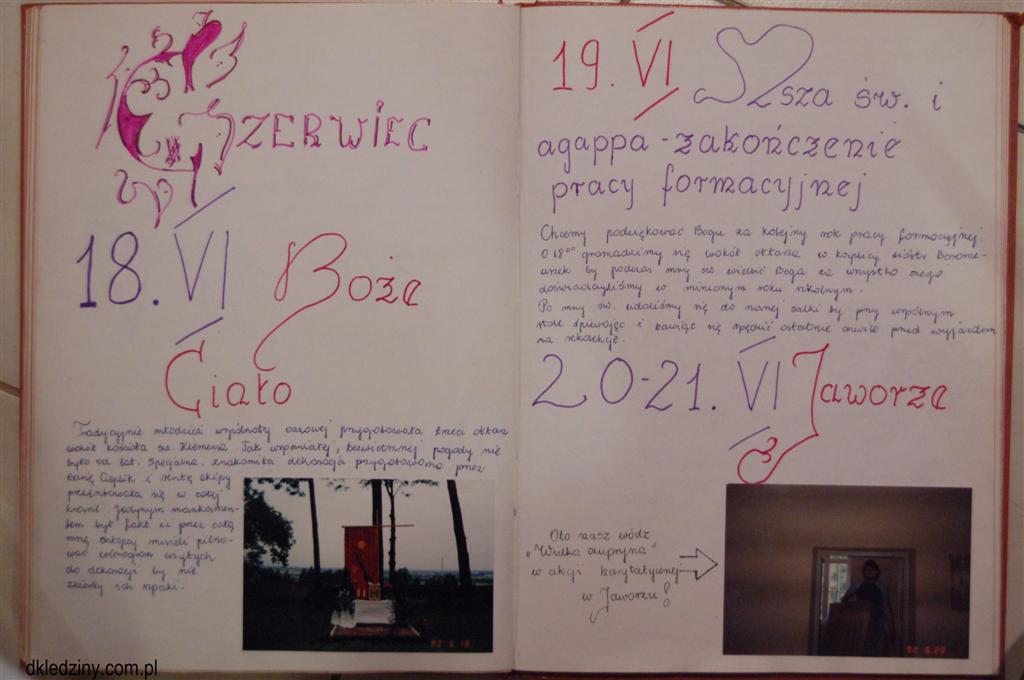 CZERWIEC
18. VI Boże
Ciało
Tradycyjnie młodzież wspólnoty oazowej przygotowała trzeci ołtarz
wokół kościoła św. Klemensa. Tak wspaniałej, bezwietrznej pogody nie
było od lat. Specjalna, znakomita dekoracja przygotowana przez
i resztę ekipy
prezentowała się w całej
krasie. Jedynym mankamen-
tem był fakt iż przez całą
mszę chłopcy musieli pilno-
wać winogron użytych
do dekoracji by nie
zżarły ich szpaki.
92 6 18
19. VI Msza św. i
agappa - zakończenie
pracy formacyjnej
Chcemy podziękować Bogu za kolejny rok pracy formacyjnej.
O 18⁰⁰ gromadzimy się wokół ołtarza w kaplicy sióstr Borome-
uszek by podczas mszy św. wielbić Boga za wszystko czego
doświadczyliśmy w minionym roku szkolnym.
Po mszy św. udaliśmy się do naszej salki by przy wspólnym
stole śpiewając i bawiąc się spędzić ostatnie chwile przed wyjazdem
na rekolekcje.
20-21. VI Jaworze
Oto nasz wódz
„Wielka czupryna”
w akcji karytatywnej
w Jaworzu!
92 6 20
dkledziny.com.pl